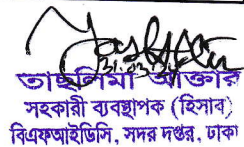 তাছলিমা আক্তার
সহকারী ব্যবস্থাপক (হিসাব)
বিএফআইডিসি, সদর দপ্তর, ঢাকা